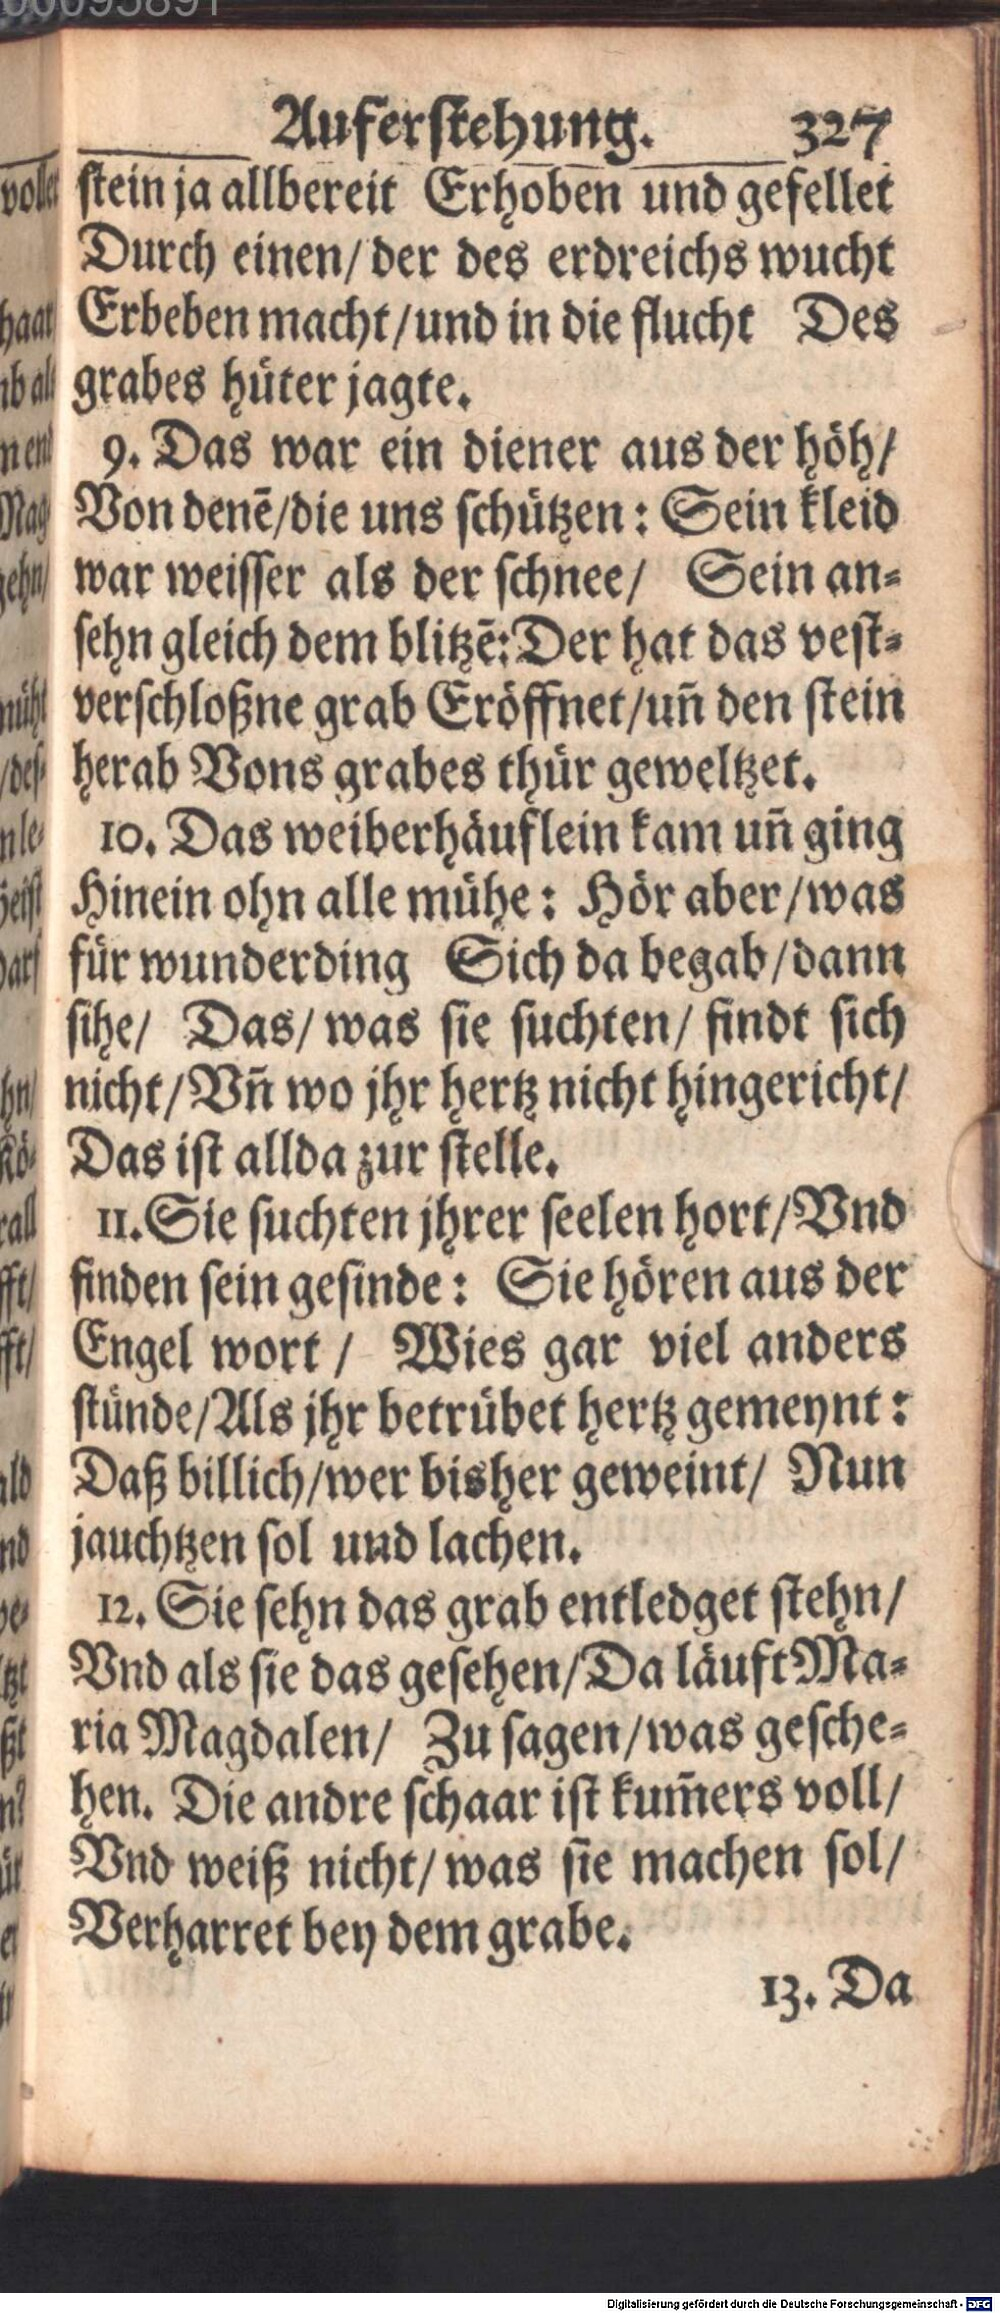 Auferstehung. 327
stein ja allbereit Erhoben und gefellet
Durch einen/ der des erdreichs wucht
Erbeben macht/und in die flucht Des
grabes hüter jagte.
9. Das war ein diener aus der höh/
Von denē/die uns schützen: Sein kleid
war weisser als der schnee/ Sein an-
sehn gleich dem blitzē: Der hat das vest-
verschloßne grab Eröffnet/uñ den stein
herab Vons grabes thür geweltzet.
10. Das weiberhäuflein kam uñ ging
Hinein ohn alle mühe: Hör aber/was
für wunderding Sich da begab/dann
sihe/ Das/ was sie suchten/ findt sich
nicht/Vñ wo jhr hertz nicht hingericht/
Das ist allda zur stelle.
11. Sie suchten jhrer seelen hort/Vnd
finden sein gesinde: Sie hören aus der
Engel wort / Wies gar viel anders
stünde/Als jhr betrübet hertz gemeynt:
Daß billich/wer bisher geweint/ Nun
jauchtzen sol und lachen.
12. Sie sehn das grab entledget stehn/
Vnd als sie das gesehen/Da läuft Ma-
ria Magdalen/ Zu sagen/was gesche-
hen. Die andre schaar ist kum̃ers voll/
Vnd weiß nicht/ was sie machen sol/
Verharret bey dem grabe.
13. Da
Digitalisierung gefördert durch die Deutsche Forschungsgemeinschaft - DFG